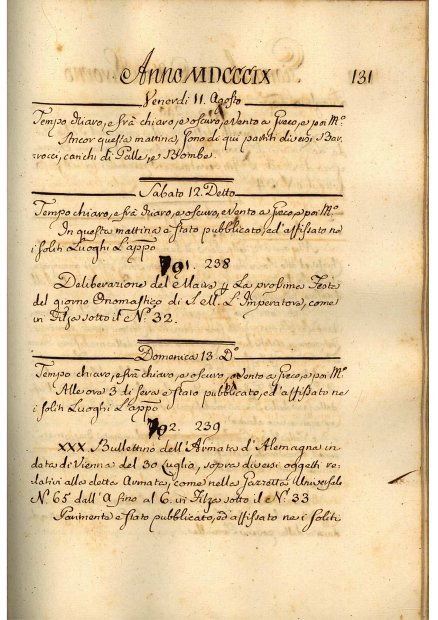 Anno MDCCCIX 131
Venerdi 11. Agosto
Tempo chiaro, e frà chiaro, e oscuro, e vento a Greco, e poi M.º
Ancor questa mattina, sono di qui partiti diversi Bar-
rocci, carichi di Palle, e Bombe.
Sabato 12. Detto
Tempo chiaro, e frà chiaro, e oscuro, e vento a Greco, e poi M.º
In questa mattina è stato pubblicato, ed affissato ne
i soliti Luoghi L'appo
238
Deliberazione del Maire La prossima Festa
del giorno Onomastico di S. M. L'Imperatore, come
in Filza sotto il N.º 32.
Domenica 13. D.º
Tempo chiaro, e frà chiaro, e oscuro, e vento a Greco, e poi M.º
Alle ore 3 di sera è stato pubblicato, ed affissato ne
i soliti Luoghi L'appo
239
XXX Bullettino dell'Armata d'Alemagna in
data di Vienna del 30 Luglio, sopra diversi oggetti re-
lativi alla detta Armata, come nella Gazzetta Universale
N.º 65 dall'A fino al 6. in Filza sotto il N.º 33
Parimente è stato pubblicato, ed affissato ne i soliti